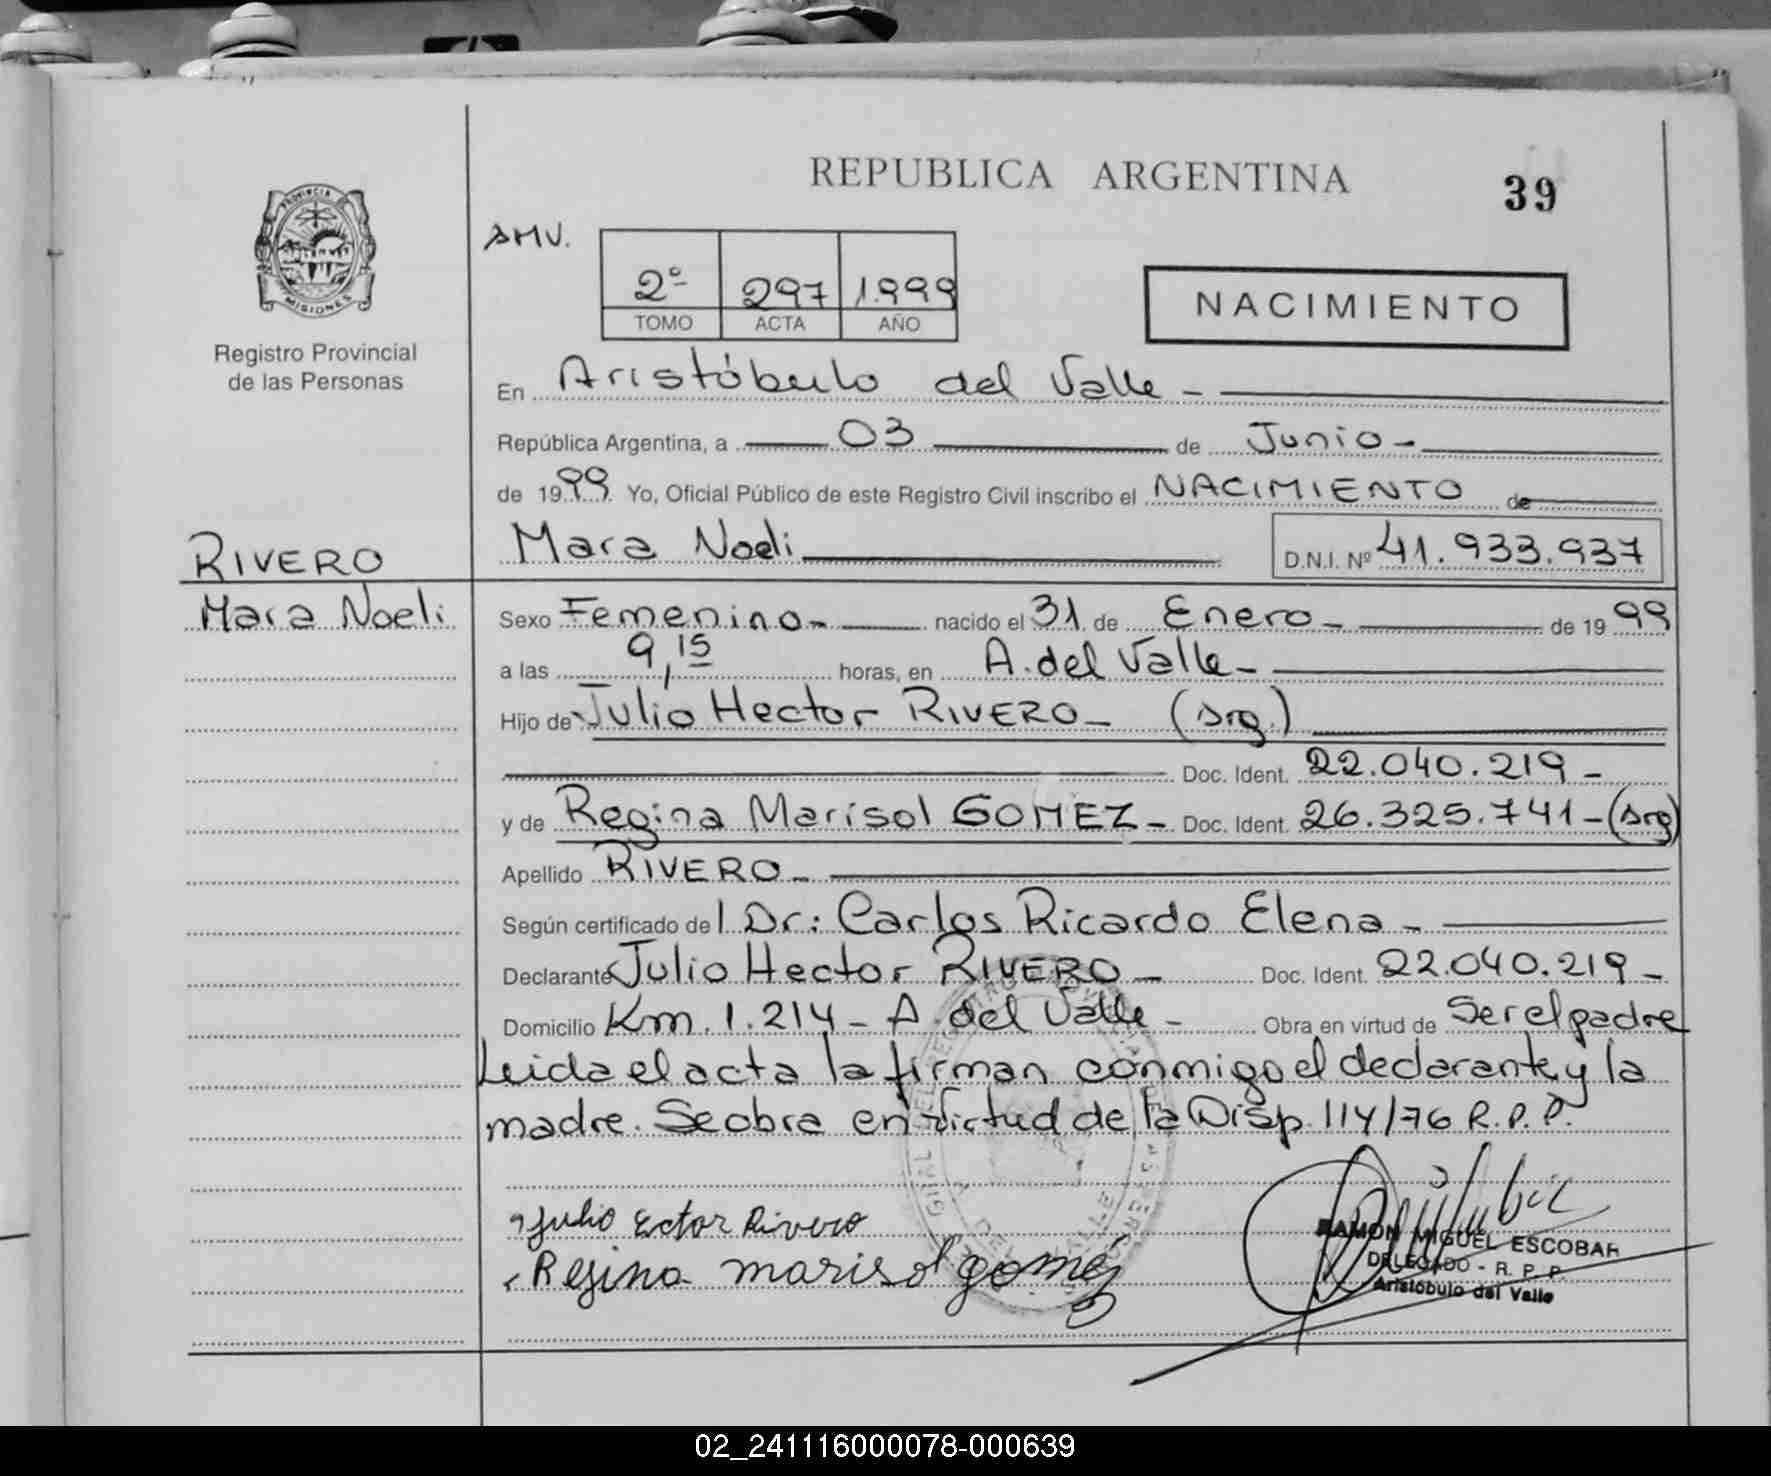 REPUBLICA ARGENTINA
39
PROVINCIA DE
MISIONES
Registro Provincial
de las Personas
AMV.
2º 297 1.999
TOMO ACTA AÑO
NACIMIENTO
En Aristóbulo del Valle -
República Argentina, a 03 de Junio -
de 1999. Yo, Oficial Público de este Registro Civil inscribo el NACIMIENTO de
RIVERO
Mara Noeli
Mara Noeli D.N.I. Nº 41.933.937
Sexo Femenino - nacido el 31 de Enero - de 1999
a las 9,15 horas, en A. del Valle -
Hijo de Julio Hector RIVERO - (Arg.)
Doc. Ident. 22.040.219 -
y de Regina Marisol GOMEZ - Doc. Ident. 26.325.741 - (Arg)
Apellido RIVERO -
Según certificado del Dr: Carlos Ricardo Elena -
Declarante Julio Hector RIVERO - Doc. Ident. 22.040.219 -
Domicilio Km. 1.214 - A. del Valle - Obra en virtud de Ser el padre
Leida el acta la firman conmigo el declarante y la
madre. Se obra en virtud de la Disp. 114/76 R.P.P.
Julio Ector Rivero
Regina marisol gomez
RAMON MIGUEL ESCOBAR
DELEGADO - R. P. P.
Aristóbulo del Valle
02_241116000078-000639